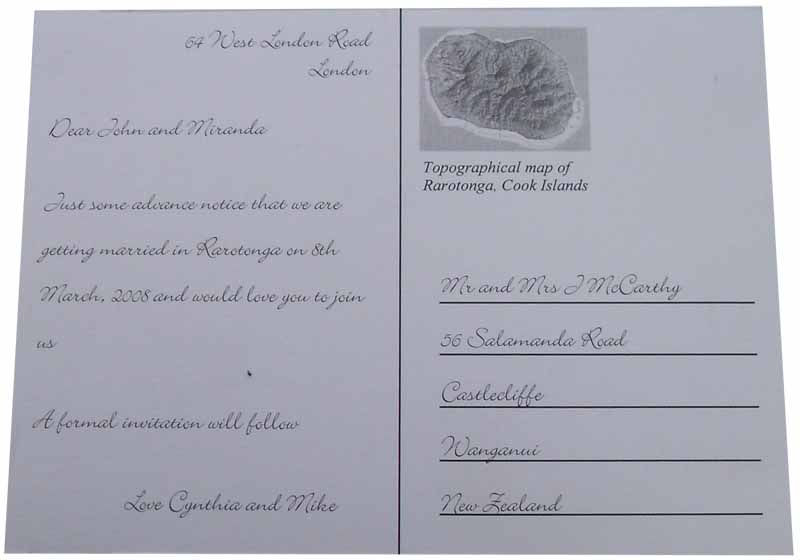 64 West London Road
London
Dear John and Miranda
Just some advance notice that we are
getting married in Rarotonga on 8th
March, 2008 and would love you to join
us
A formal invitation will follow
Love Cynthia and Mike
Topographical map of
Rarotonga, Cook Islands
Mr and Mrs J McCarthy
56 Salamanda Road
Castlecliffe
Wanganui
New Zealand